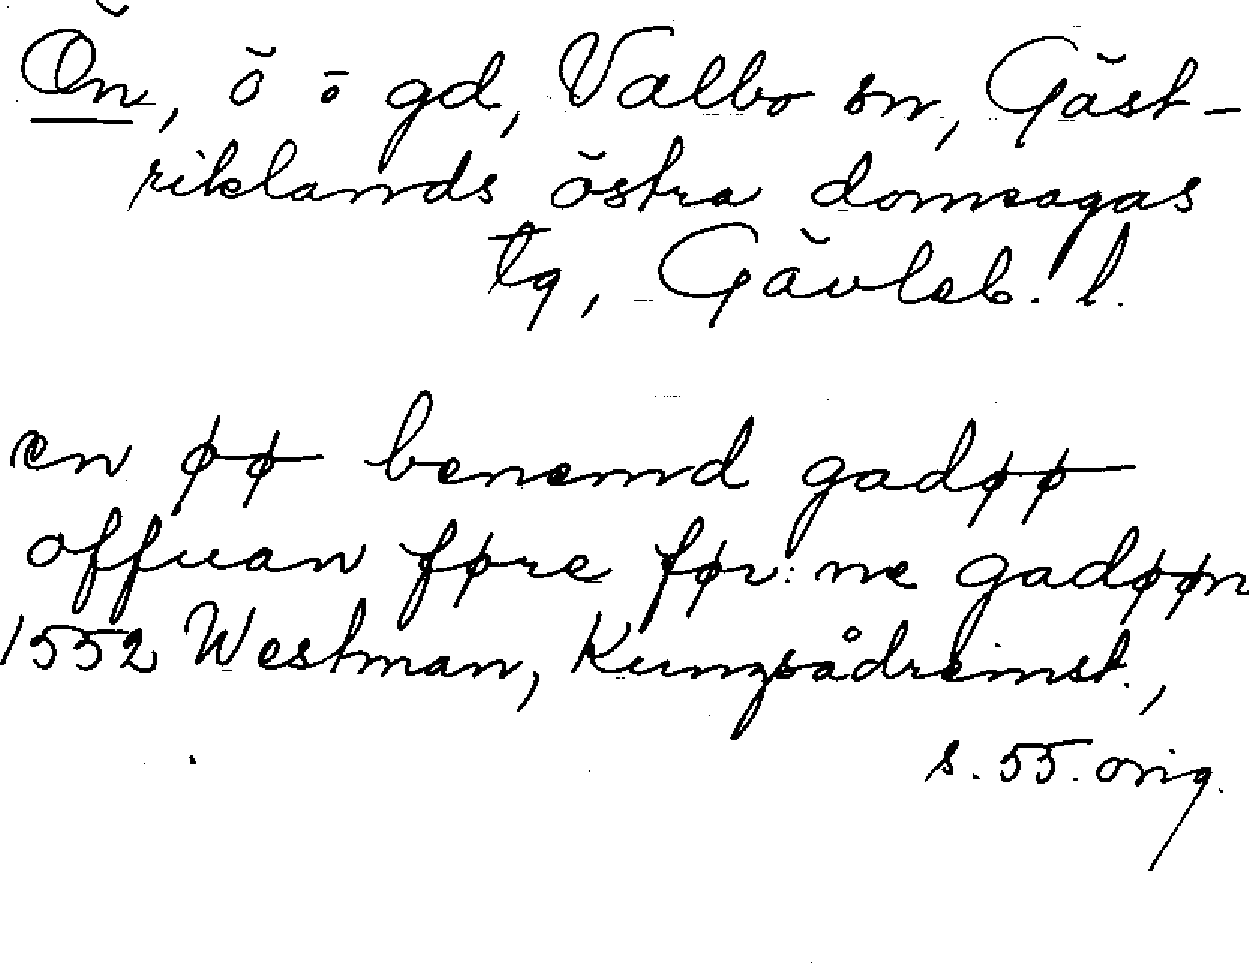 Ön, ö o gd, Valbo sn, Gäst-
riklands östra domsagas
tg, Gävleb. l.
en øø benemd gadøø
offuan føre før:ne gadøøn
1552 Westman, Kungsådreinst.,
s. 55. orig.